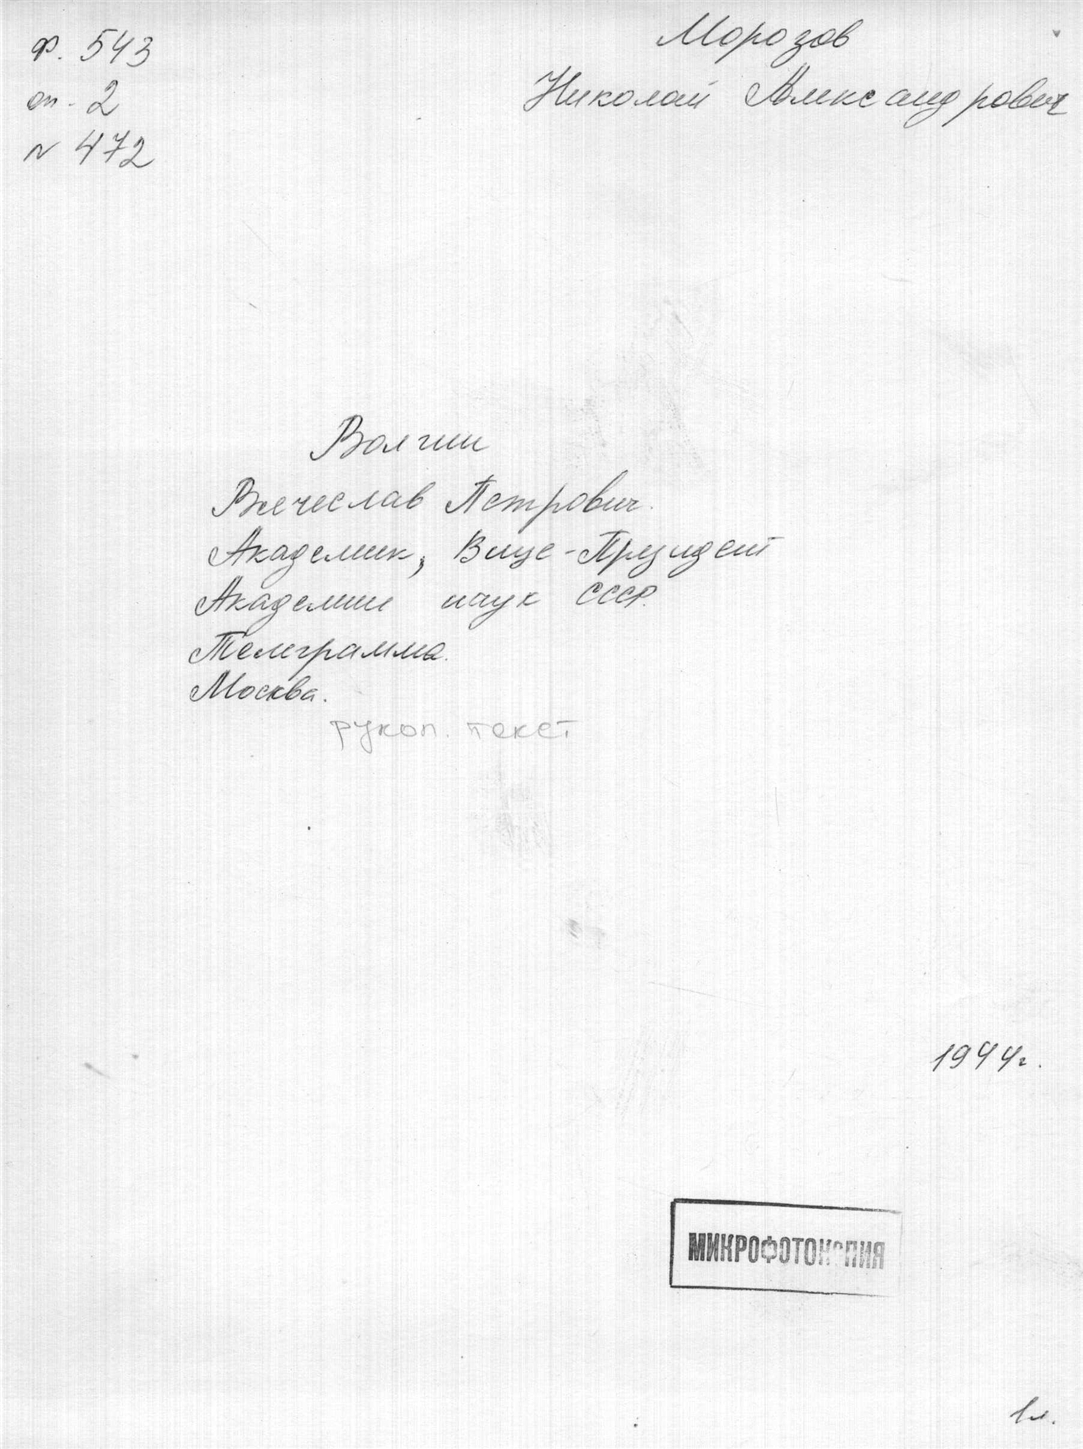 Ф. 543
оп. 2
N 472
Морозов
Николай Александрович
Волгин
Вячеслав Петрович.
Академик, Вице-Президент
Академии наук СССР.
Телеграмма.
Москва.
рукоп. текст
1944г.
МИКРОФОТОКОПИЯ
1л.